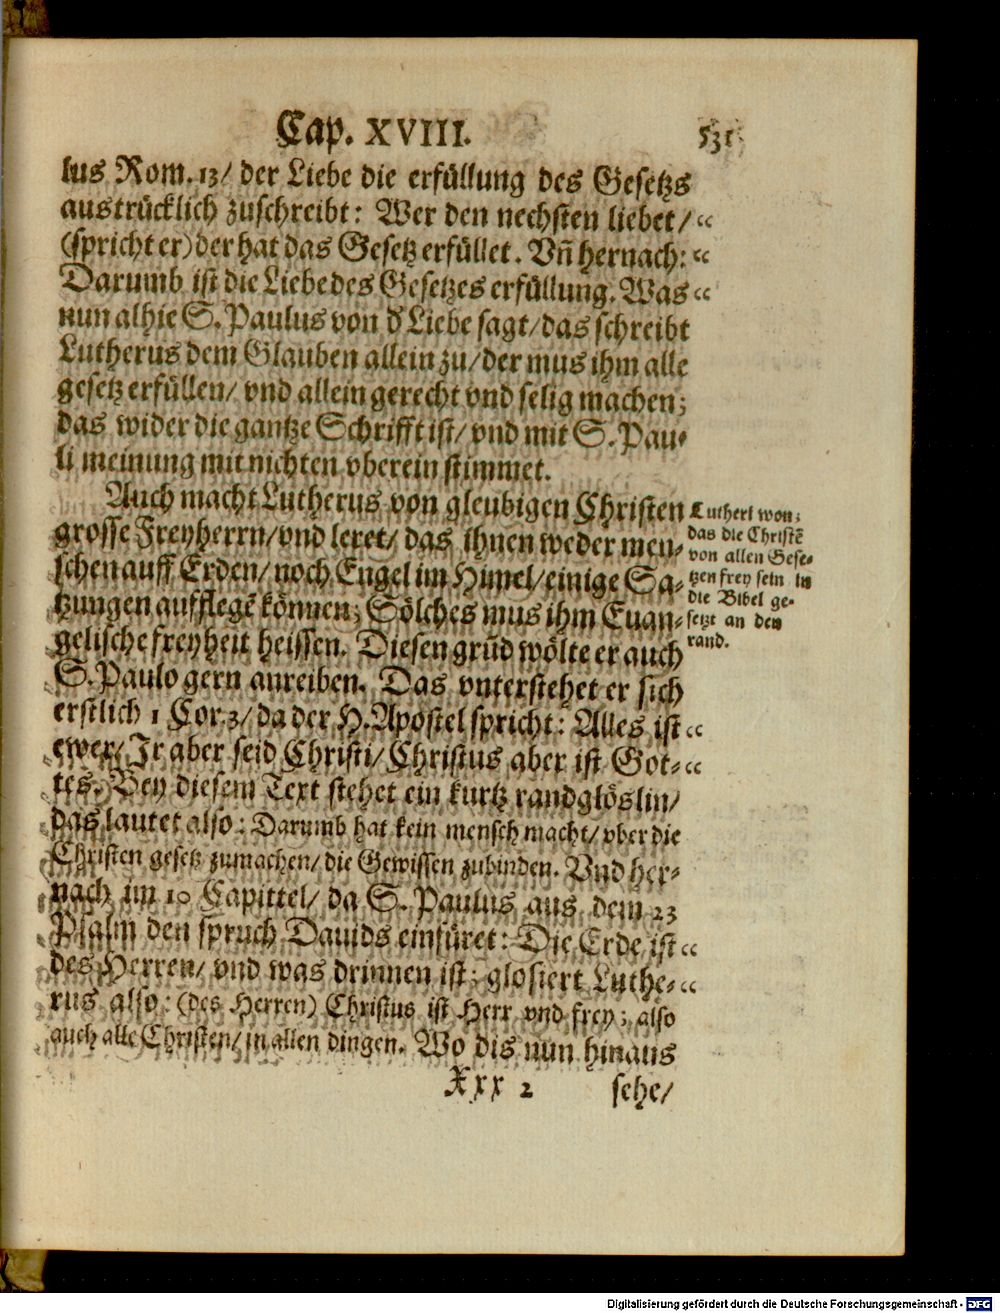 Cap. XVIII. 531
lus Rom. 13/ der Liebe die erfüllung des Gesetzs
austrücklich zuschreibt: Wer den nechsten liebet/ “
(spricht er) der hat das Gesetz erfüllet. Vñ hernach: “
Darumb ist die Liebe des Gesetzes erfüllung. Was “
nun alhie S. Paulus von d' Liebe sagt/ das schreibt
Lutherus dem Glauben allein zu/ der mus ihm alle
gesetz erfüllen/ vnd allein gerecht vnd selig machen;
das wider die gantze Schrifft ist/ vnd mit S. Pau-
li meinung mit nichten vberein stimmet.
Auch macht Lutherus von gleubigen Christen
grosse Freyherrn/ vnd leret/ das ihnen weder men-
schen auff Erden/ noch Engel im Himel/ einige Sa-
tzungen aufflegẽ können; Sölches mus ihm Euan-
gelische freyheit heissen. Diesen grũd wölte er auch
S. Paulo gern anreiben. Das vnterstehet er sich
erstlich 1 Cor. 3/ da der H. Apostel spricht: Alles ist “
ewer/ Jr aber seid Christi/ Christus aber ist Got- “
tes. Bey diesem Text stehet ein kurtz randglöslin/
das lautet also: Darumb hat kein mensch macht/ vber die
Christen gesetz zumachen/ die Gewissen zubinden. Vnd her-
nach im 10 Capittel/ da S. Paulus aus dem 23
Psalm den spruch Dauids einfüret: Die Erde ist “
des Herren/ vnd was drinnen ist; glosiert Luthe- “
rus also: (des Herren) Christus ist Herr vnd frey; also
auch alle Christen/ in allen dingen. Wo dis nun hinaus
Xxx 2 sehe/
Lutheri won:
das die Christẽ
von allen Gese-
tzen frey sein in
die Bibel ge-
setzt an den
rand.
Digitalisierung gefördert durch die Deutsche Forschungsgemeinschaft - DFG